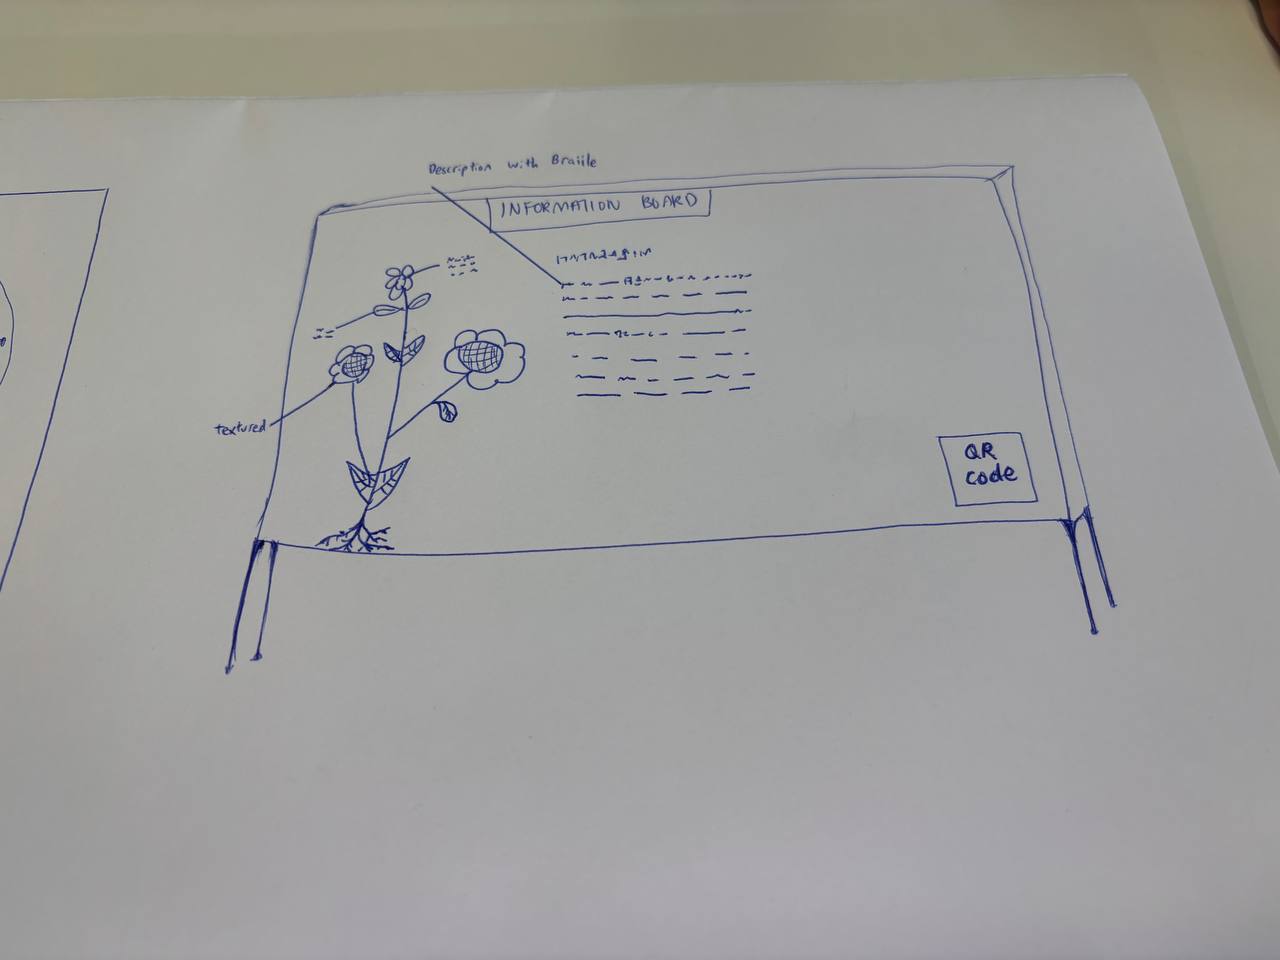 Description with Braiile
INFORMATION BOARD
textured
QR
code